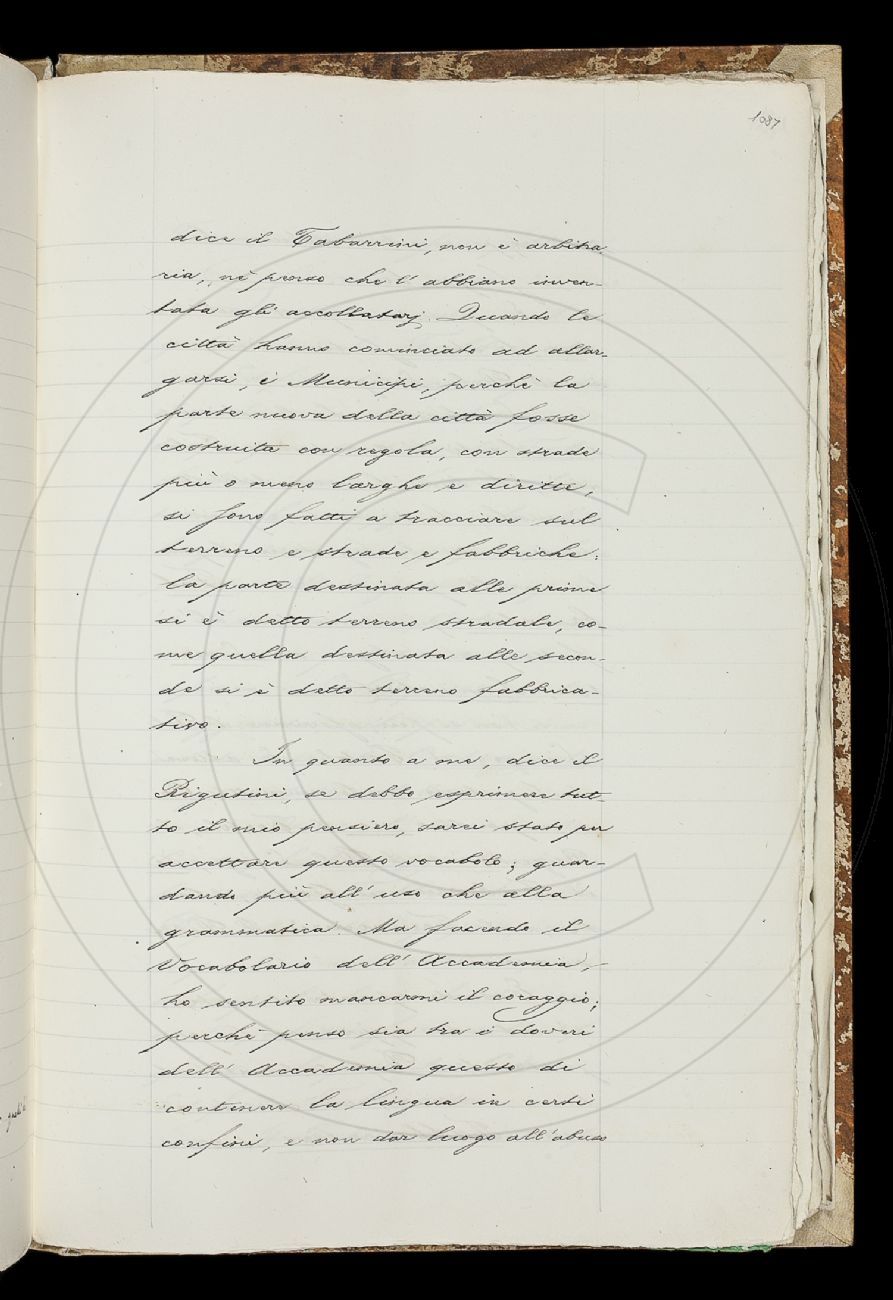 1087
dice il Tabarrini, non è arbitra
ria, nè penso che l'abbiano inven-
tata gli accollatarj. Quando le
città hanno cominciato ad allar-
garsi, i Municipi, perchè la
parte nuova della città fosse
costruita con regola, con strade
più o meno larghe e diritte,
si sono fatti a tracciare sul
terreno e strade e fabbriche:
la parte destinata alle prime
si è detto terreno stradale, co-
me quella destinata alle secon-
de si è detto terreno fabbrica-
tivo.
In quanto a me, dice il
Rigutini, se debbo esprimere tut-
to il mio pensiero, sarei stato per
accettare questo vocabolo; guar-
dando più all'uso che alla
grammatica. Ma facendo il
Vocabolario dell'Accademia,
ho sentito mancarmi il coraggio;
perchè penso sia tra i doveri
dell'Accademia questo di
contenere la lingua in certi
confini, e non dar luogo all'abuso